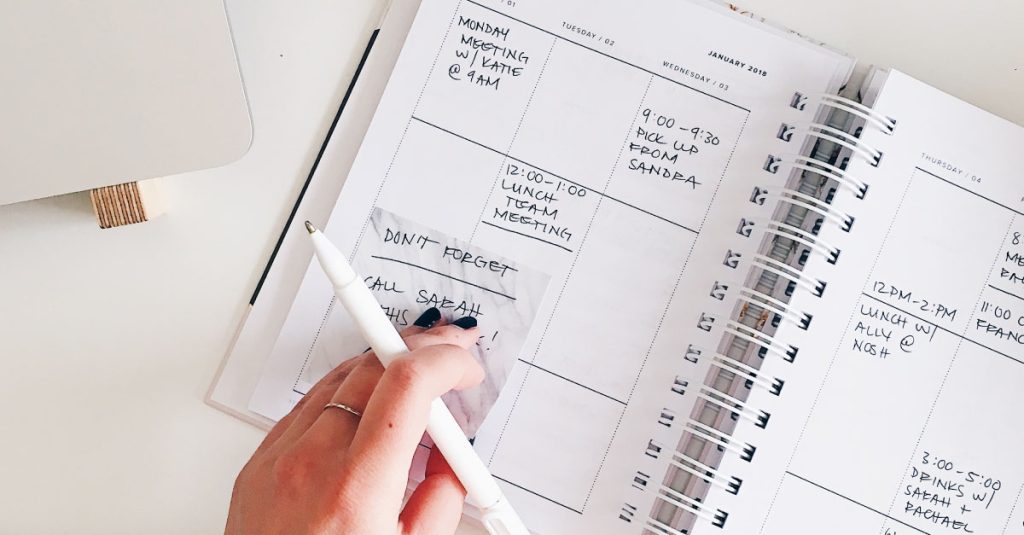 / 01
TUESDAY / 02
JANUARY 2018
WEDNESDAY / 03
MONDAY
MEETING
W/ KATIE
@ 9AM
12:00-1:00
LUNCH
TEAM
MEETING
9:00-9:30
PICK UP
FROM
SANDRA
DON'T FORGET
CALL SARAH
THIS
!
THURSDAY / 04
12PM-2:PM
LUNCH W/
ALLY @
NOSH
11:00
FRANC
3:00-5:00
DRINKS W/
SARAH +
RACHAEL